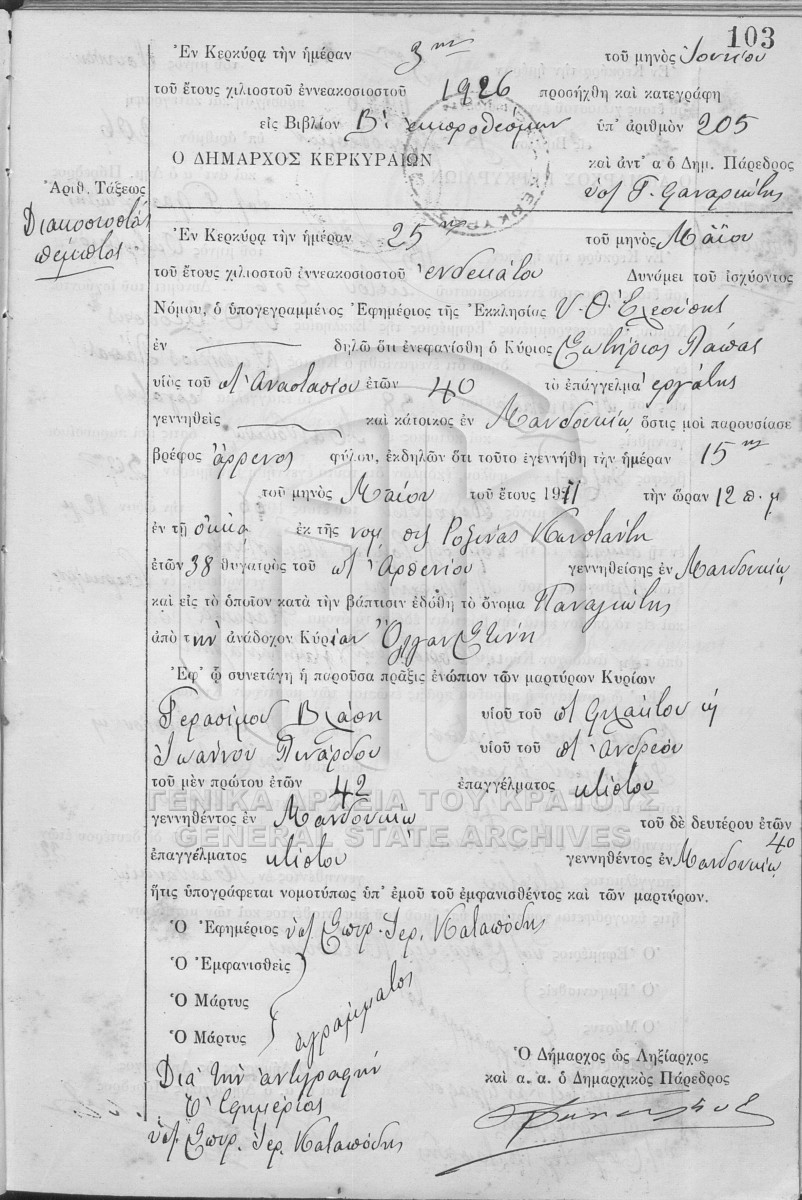 103
Ἐν Κερκύρᾳ τὴν ἡμέραν 3ην τοῦ μηνὸς Ἰουνίου
τοῦ ἔτους χιλιοστοῦ ἐννεακοσιοστοῦ 1926 προσήχθη καὶ κατεγράφη
εἰς Βιβλίον Βʹ ἐκπροθέσμων ὑπ' ἀριθμὸν 205
Ο ΔΗΜΑΡΧΟΣ ΚΕΡΚΥΡΑΙΩΝ καὶ ἀντ' α ὁ Δημ. Πάρεδρος
Ἀριθ. Τάξεως
Διακοσιοστὸς
πέμπτος
Ἐν Κερκύρᾳ τὴν ἡμέραν 25ην τοῦ μηνὸς Μαΐου
τοῦ ἔτους χιλιοστοῦ ἐννεακοσιοστοῦ ἑνδεκάτου Δυνάμει τοῦ ἰσχύοντος
Νόμου, ὁ ὑπογεγραμμένος Ἐφημέριος τῆς Ἐκκλησίας Υ. Θ. Ἐλεούσης
ἐν δηλῶ ὅτι ἐνεφανίσθη ὁ Κύριος Σωτήριος Πάπας
υἱὸς τοῦ ποτ Ἀναστασίου ἐτῶν 40 τὸ ἐπάγγελμα ἐργάτης
γεννηθεὶς καὶ κάτοικος ἐν Μανδουκίῳ ὅστις μοὶ παρουσίασε
βρέφος ἄρρενος φύλου, ἐκδηλῶν ὅτι τοῦτο ἐγεννήθη τὴν ἡμέραν 15ην
τοῦ μηνὸς Μαΐου τοῦ ἔτους 1911 τὴν ὥραν 12 π. μ
ἐν τῇ οἰκίᾳ ἐκ τῆς νομ. συζ Ροζίνας
ἐτῶν 38 θυγατρὸς τοῦ ποτ Ἀρσενίου γεννηθείσης ἐν Μανδουκίῳ
καὶ εἰς τὸ ὁποῖον κατὰ τὴν βάπτισιν ἐδόθη τὸ ὄνομα Παναγιώτης
ἀπὸ τὴν ἀνάδοχον Κυρίαν Ὄλγαν
Ἐφ' ᾧ συνετάγη ἡ παροῦσα πρᾶξις ἐνώπιον τῶν μαρτύρων Κυρίων
Γερασίμου Βλάση υἱοῦ τοῦ ποτ
Ἰωάννου Πινάρδου υἱοῦ τοῦ ποτ Ἀνδρέου
τοῦ μὲν πρώτου ἐτῶν 42 ἐπαγγέλματος κτίστου
γεννηθέντος ἐν Μανδουκίῳ τοῦ δὲ δευτέρου ἐτῶν 40
ἐπαγγέλματος κτίστου γεννηθέντος ἐν Μανδουκίῳ
ἥτις ὑπογράφεται νομοτύπως ὑπ' ἐμοῦ τοῦ ἐμφανισθέντος καὶ τῶν μαρτύρων.
Ὁ Ἐφημέριος ὑπ Σπυρ. Ἱερ. Καταπόδης
Ὁ Ἐμφανισθεὶς
Ὁ Μάρτυς
Ὁ Μάρτυς
ἀγράμματοι
Διὰ τὴν ἀντιγραφὴν
Ὁ Ἐφημέριος
ὑπ. Σπυρ. Ἱερ. Καταπόδης
Ὁ Δήμαρχος ὡς Ληξίαρχος
καὶ α. α. ὁ Δημαρχικὸς Πάρεδρος
ΓΕΝΙΚΑ ΑΡΧΕΙΑ ΤΟΥ ΚΡΑΤΟΥΣ
GENERAL STATE ARCHIVES